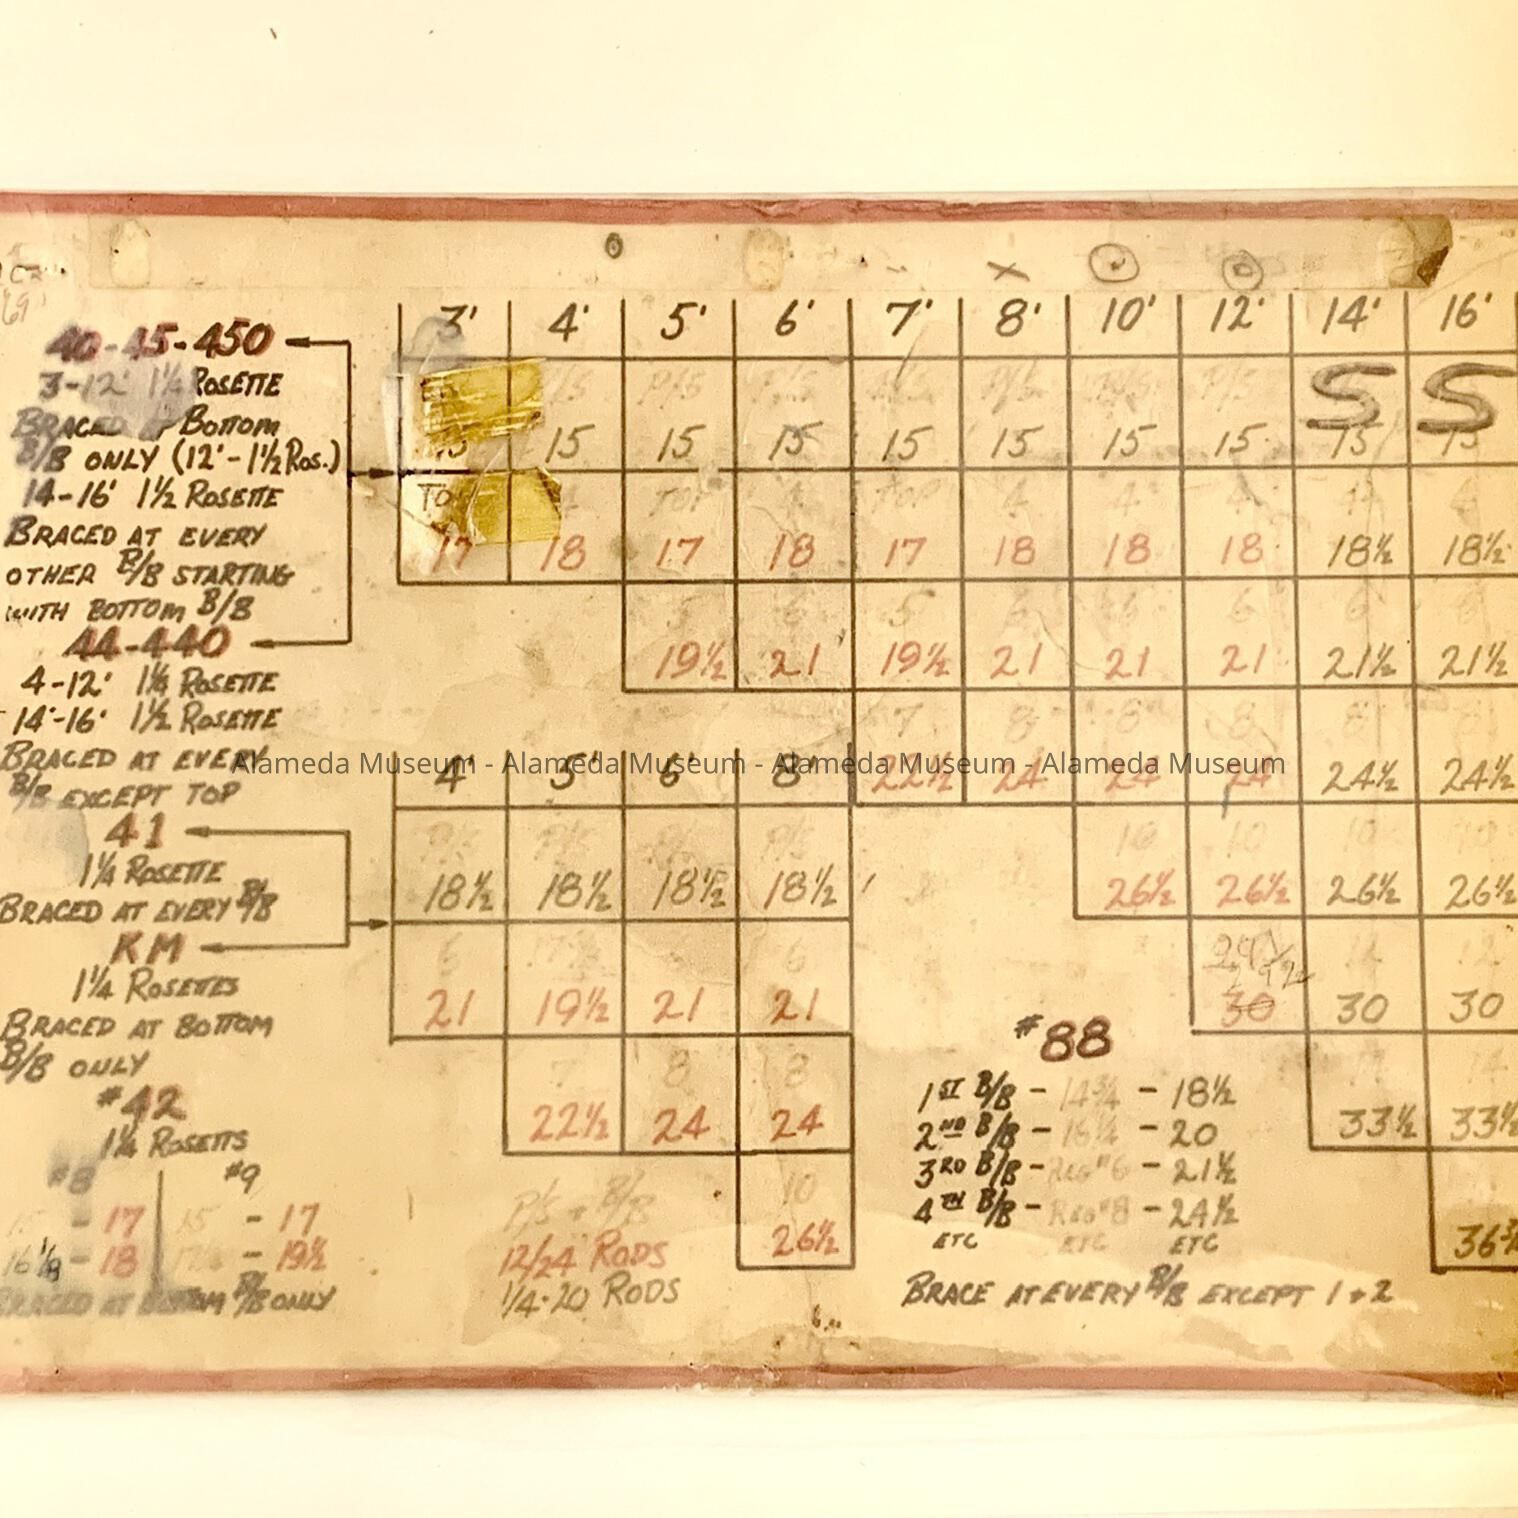 3' 4' 5' 6' 7' 8' 10' 12' 14' 16'
40-45-450
3-12' 1¼ ROSETTE
BRACED BOTTOM
B/B ONLY (12'-1½ ROS.)
14-16' 1½ ROSETTE
BRACED AT EVERY
OTHER B/B STARTING
WITH BOTTOM B/B
44-440
4-12' 1¼ ROSETTE
14'-16' 1½ ROSETTE
BRACED AT EVERY
B/B EXCEPT TOP
41
1¼ ROSETTE
BRACED AT EVERY B/B
KM
1¼ ROSETTES
BRACED AT BOTTOM
B/B ONLY
#42
1¼ ROSETTS
#8 #9
15 - 17 15 - 17
16⅛ - 18 - 19½
BRACED AT BOTTOM B/B ONLY
P/S P/S P/S P/S S S
15 15 15 15 15 15 15 15 15 15
TOP 4 TOP 4 TOP 4 4 4 4 4
17 18 17 18 17 18 18 18 18½ 18½
5 6 5 6 6 6 6 6
19½ 21 19½ 21 21 21 21½ 21½
7 8 8 8 8 8
22½ 24 24 24 24½ 24½
10 10 10 10
26½ 26½ 26½ 26½
12 12
30 30 30
14 14
33½ 33½
36¾
4' 5' 6' 8'
P/S P/S P/S P/S
18½ 18½ 18½ 18½
6 6
21 19½ 21 21
7 8 8
22½ 24 24
10
26½
P/S + B/B
12/24 RODS
1/4-20 RODS
#88
1ST B/B - 14¾ - 18½
2ND B/B - 16¼ - 20
3RD B/B - REG #6 - 21½
4TH B/B - REG #8 - 24½
ETC ETC ETC
BRACE AT EVERY B/B EXCEPT 1+2
Alameda Museum - Alameda Museum - Alameda Museum - Alameda Museum